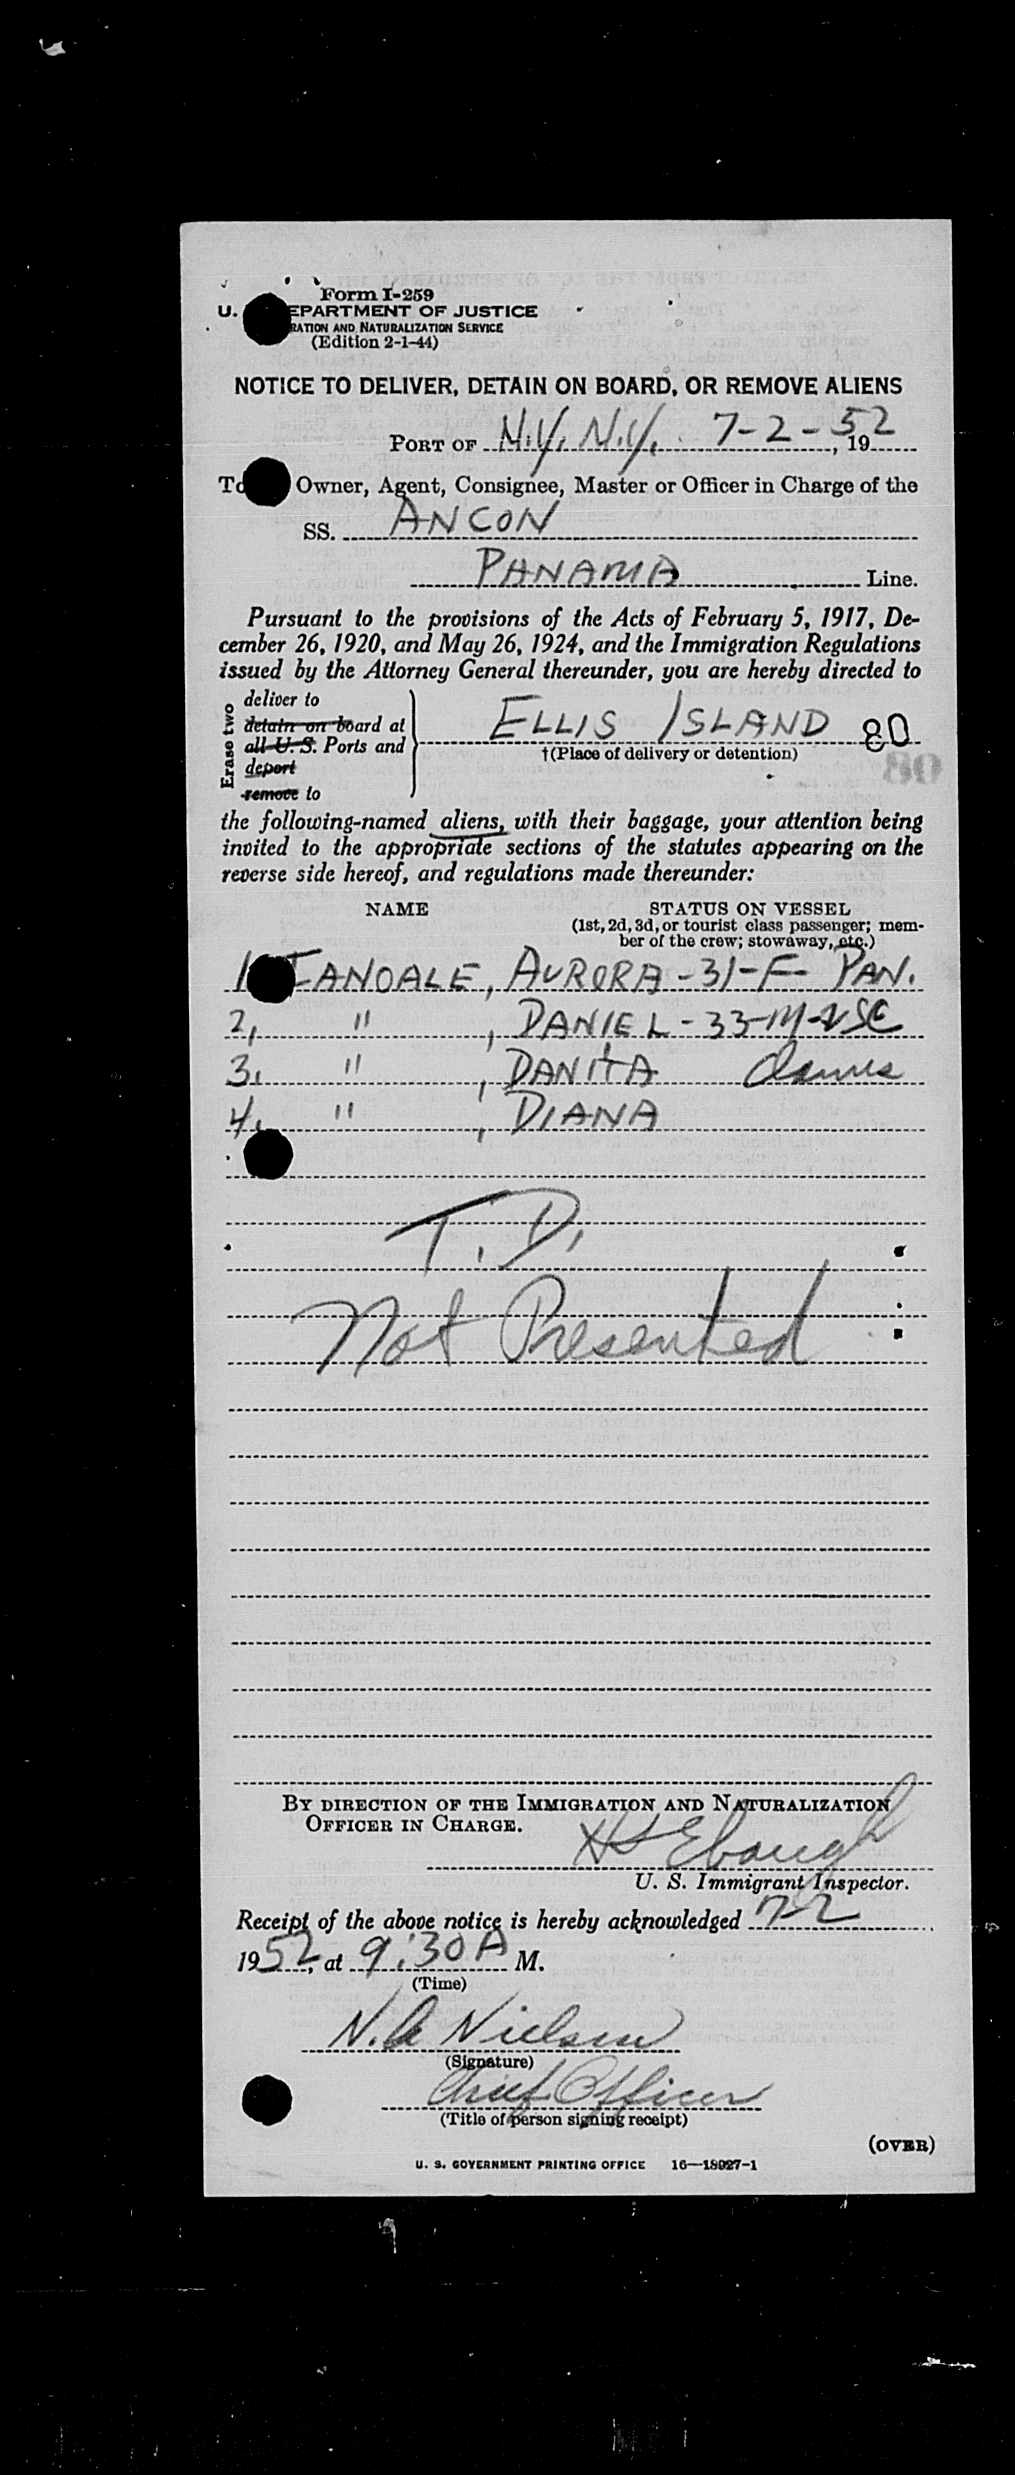 Form I-259
U. EPARTMENT OF JUSTICE
RATION AND NATURALIZATION SERVICE
(Edition 2-1-44)
NOTICE TO DELIVER, DETAIN ON BOARD, OR REMOVE ALIENS
PORT OF N.Y. N.Y. 7-2-52, 19
To Owner, Agent, Consignee, Master or Officer in Charge of the
SS. ANCON
PANAMA Line.
Pursuant to the provisions of the Acts of February 5, 1917, De-
cember 26, 1920, and May 26, 1924, and the Immigration Regulations
issued by the Attorney General thereunder, you are hereby directed to
Erase two
deliver to
detain on board at
all U. S. Ports and
deport
remove to
ELLIS ISLAND 80
†(Place of delivery or detention)
the following-named aliens, with their baggage, your attention being
invited to the appropriate sections of the statutes appearing on the
reverse side hereof, and regulations made thereunder:
NAME STATUS ON VESSEL
(1st, 2d, 3d, or tourist class passenger; mem-
ber of the crew; stowaway, etc.)
1 ANDALE, AURORA-31-F- PAN.
2, " , DANIEL-33-M-USC
3. " , DANITA
4. " , DIANA
T.D.
Not Presented
BY DIRECTION OF THE IMMIGRATION AND NATURALIZATION
OFFICER IN CHARGE.
Ebaugh
U. S. Immigrant Inspector.
Receipt of the above notice is hereby acknowledged 7-2
1952, at 9:30 A M.
(Time)
N. A Nielsen
(Signature)
Chief Officer
(Title of person signing receipt)
(OVER)
U. S. GOVERNMENT PRINTING OFFICE 16—18027-1